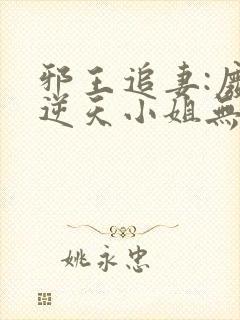 邪王追妻:
逆天小姐無
姚永忠